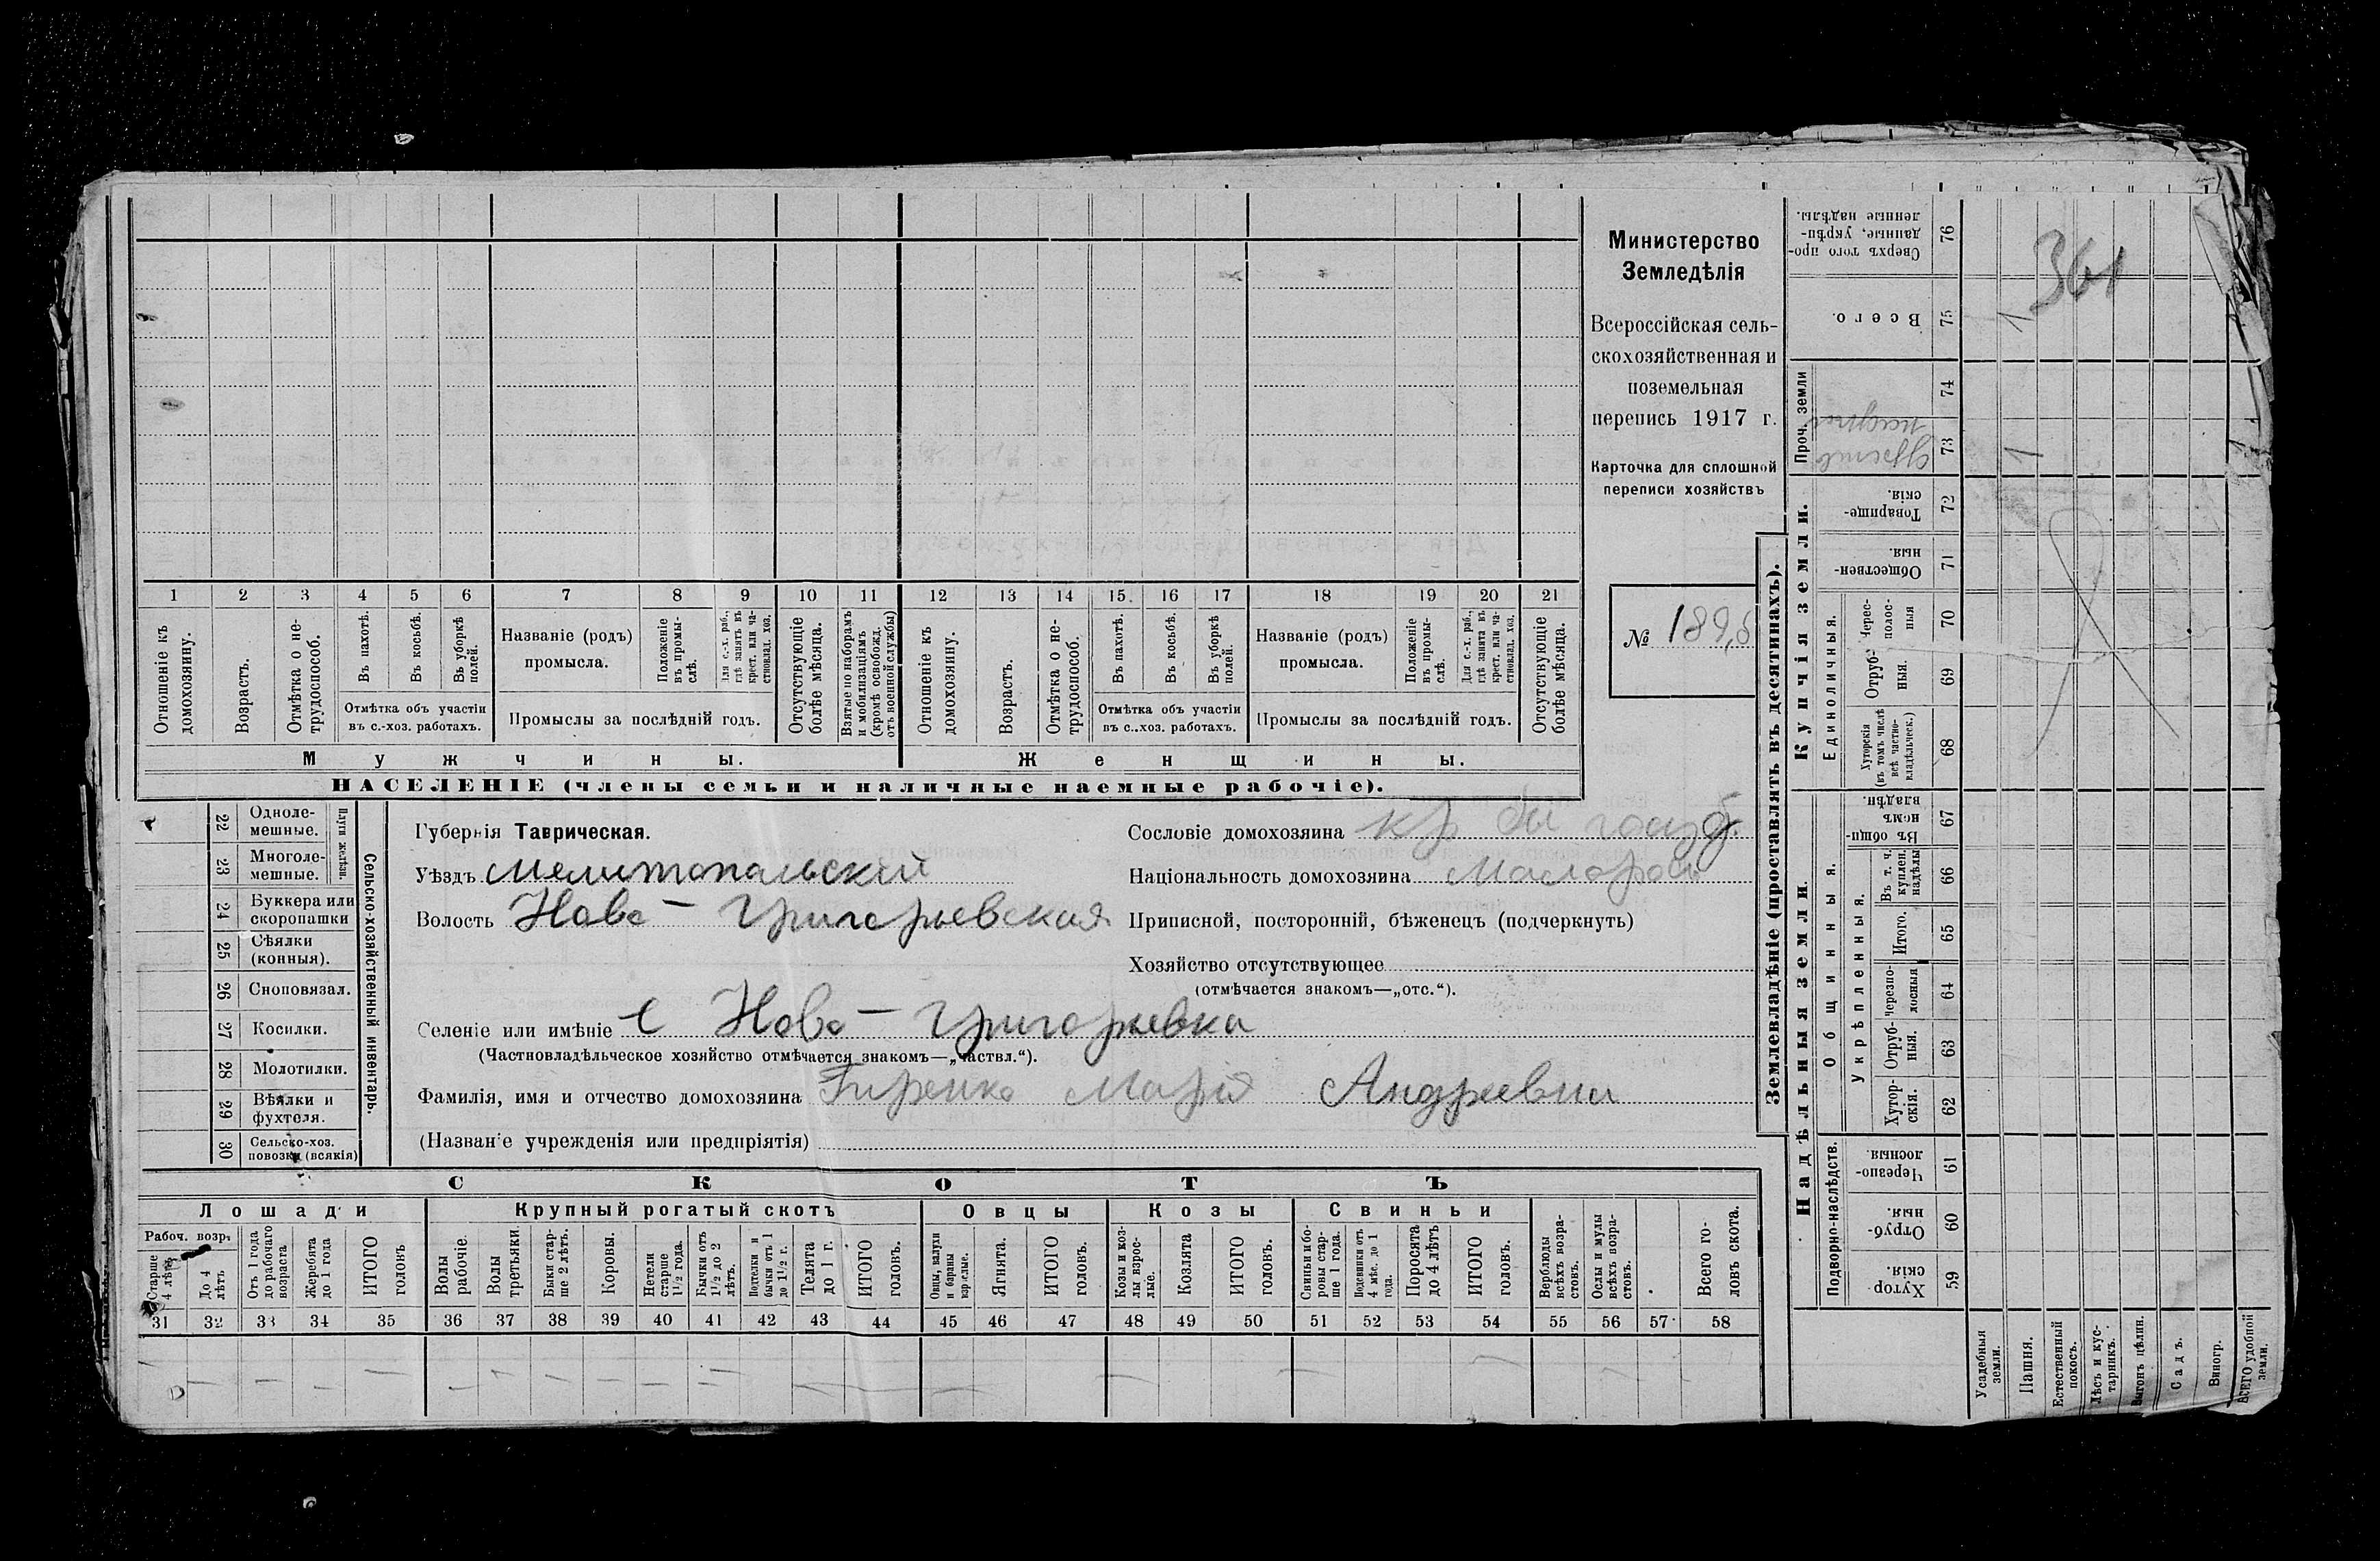 Министерство
Земледѣлія
Всероссійская сель-
скохозяйственная и
поземельная
перепись 1917 г.
Карточка для сплошной
переписи хозяйствъ
№ 189,8
1 2 3 4 5 6 7 8 9 10 11 12 13 14 15 16 17 18 19 20 21
Отношеніе къ
домохозяину.
Возрастъ.
Отмѣтка о не-
трудоспособ.
Въ пахотѣ.
Въ косьбѣ.
Въ уборкѣ
полей.
Отмѣтка объ участіи
въ с.-хоз. работахъ.
Названіе (родъ)
промысла.
Положеніе
въ промы-
слѣ.
Для с.-х. раб.,
гдѣ занятъ въ
крест. или ча-
стновлад. хоз.
Промыслы за послѣдній годъ.
Отсутствующіе
болѣе мѣсяца.
Взятые по наборамъ
и мобилизаціямъ
(кромѣ освобожд.
отъ военной службы)
Отношеніе къ
домохозяину.
Возрастъ.
Отмѣтка о не-
трудоспособ.
Въ пахотѣ.
Въ косьбѣ.
Въ уборкѣ
полей.
Отмѣтка объ участіи
въ с..хоз. работахъ.
Названіе (родъ)
промысла.
Положеніе
въ промы-
слѣ.
Для с.-х. раб.,
гдѣ занята въ
крест. или ча-
стновлад. хоз.
Промыслы за послѣдній годъ.
Отсутствующіе
болѣе мѣсяца.
Мужчины.
Женщины.
НАСЕЛЕНІЕ (члены семьи и наличные наемные рабочіе).
22 Одноле-
мешные.
23 Многоле-
мешные.
Плуги желѣзн.
24 Буккера или
скоропашки
25 Сѣялки
(конныя).
26 Сноповязал.
27 Косилки.
28 Молотилки.
29 Вѣялки и
фухтеля.
30 Сельско-хоз.
повозки (всякія)
Сельско-хозяйственный инвентарь.
Губернія Таврическая.
Уѣздъ Мелитопальский
Волость Ново-Григорьевская
Селеніе или имѣніе с Ново-Григорьевка
(Частновладѣльческое хозяйство отмѣчается знакомъ—„частвл.“).
Фамилія, имя и отчество домохозяина Гиренко Марія Андреевна
(Названіе учрежденія или предпріятія)
Сословіе домохозяина кр
Національность домохозяина Малоросъ
Приписной, посторонній, бѣженецъ (подчеркнуть)
Хозяйство отсутствующее
(отмѣчается знакомъ—„отс.“).
СКОТЪ
Лошади
Рабоч. возр.
Старше
4 лѣтъ
До 4
лѣтъ
Отъ 1 года
до рабочаго
возраста
Жеребята
до 1 года
ИТОГО
головъ
Крупный рогатый скотъ
Волы
рабочіе.
Волы
третьяки.
Быки стар-
ше 2 лѣтъ.
Коровы.
Нетели
старше
1½ года.
Бычки отъ
1½ до 2
лѣтъ.
Подтелки и
бычки отъ 1
до 1½ г.
Телята
до 1 г.
ИТОГО
головъ.
Овцы
Овцы, валухи
и бараны
взрослые.
Ягнята.
ИТОГО
головъ.
Козы
Козы и коз-
лы взрос-
лые.
Козлята
ИТОГО
головъ.
Свиньи
Свиньи и бо-
ровы стар-
ше 1 года.
Подсвинки отъ
4 мѣс. до 1
года.
Поросята
до 4 лѣтъ
ИТОГО
головъ.
Верблюды
всѣхъ возра-
стовъ.
Ослы и мулы
всѣхъ возра-
стовъ.
Всего го-
ловъ скота.
31 32 33 34 35 36 37 38 39 40 41 42 43 44 45 46 47 48 49 50 51 52 53 54 55 56 57 58
Землевладѣніе (проставлять въ десятинахъ).
Купчія земли.
Сверхъ того про-
данные, укрѣп-
ленные надѣлы.
76
361
Всего.
75
1
Проч. земли
74
73
1
Товарище-
скія.
72
Обществен-
ныя.
71
Единоличныя.
Черес-
полос-
ныя
70
Отруб-
ныя.
69
Хуторскія
(въ томъ числѣ
всѣ частно-
владѣльческ.)
68
Надѣльныя земли.
Общинныя.
Въ общи-
номъ
владѣн.
67
Укрѣпленныя.
Въ т. ч.
куплен.
надѣлы
66
Итого.
65
Черезпо-
лосныя
64
Отруб-
ныя.
63
Хутор-
скія.
62
Подворно-наслѣдств.
Черезпо-
лосныя.
61
Отруб-
ныя.
60
Хутор-
скія.
59
Усадебныя
земли.
Пашня.
Естественный
покосъ.
Лѣсъ и кус-
тарникъ.
Выгонъ цѣлин.
Садъ.
Виногр.
ВСЕГО удобной
земли.